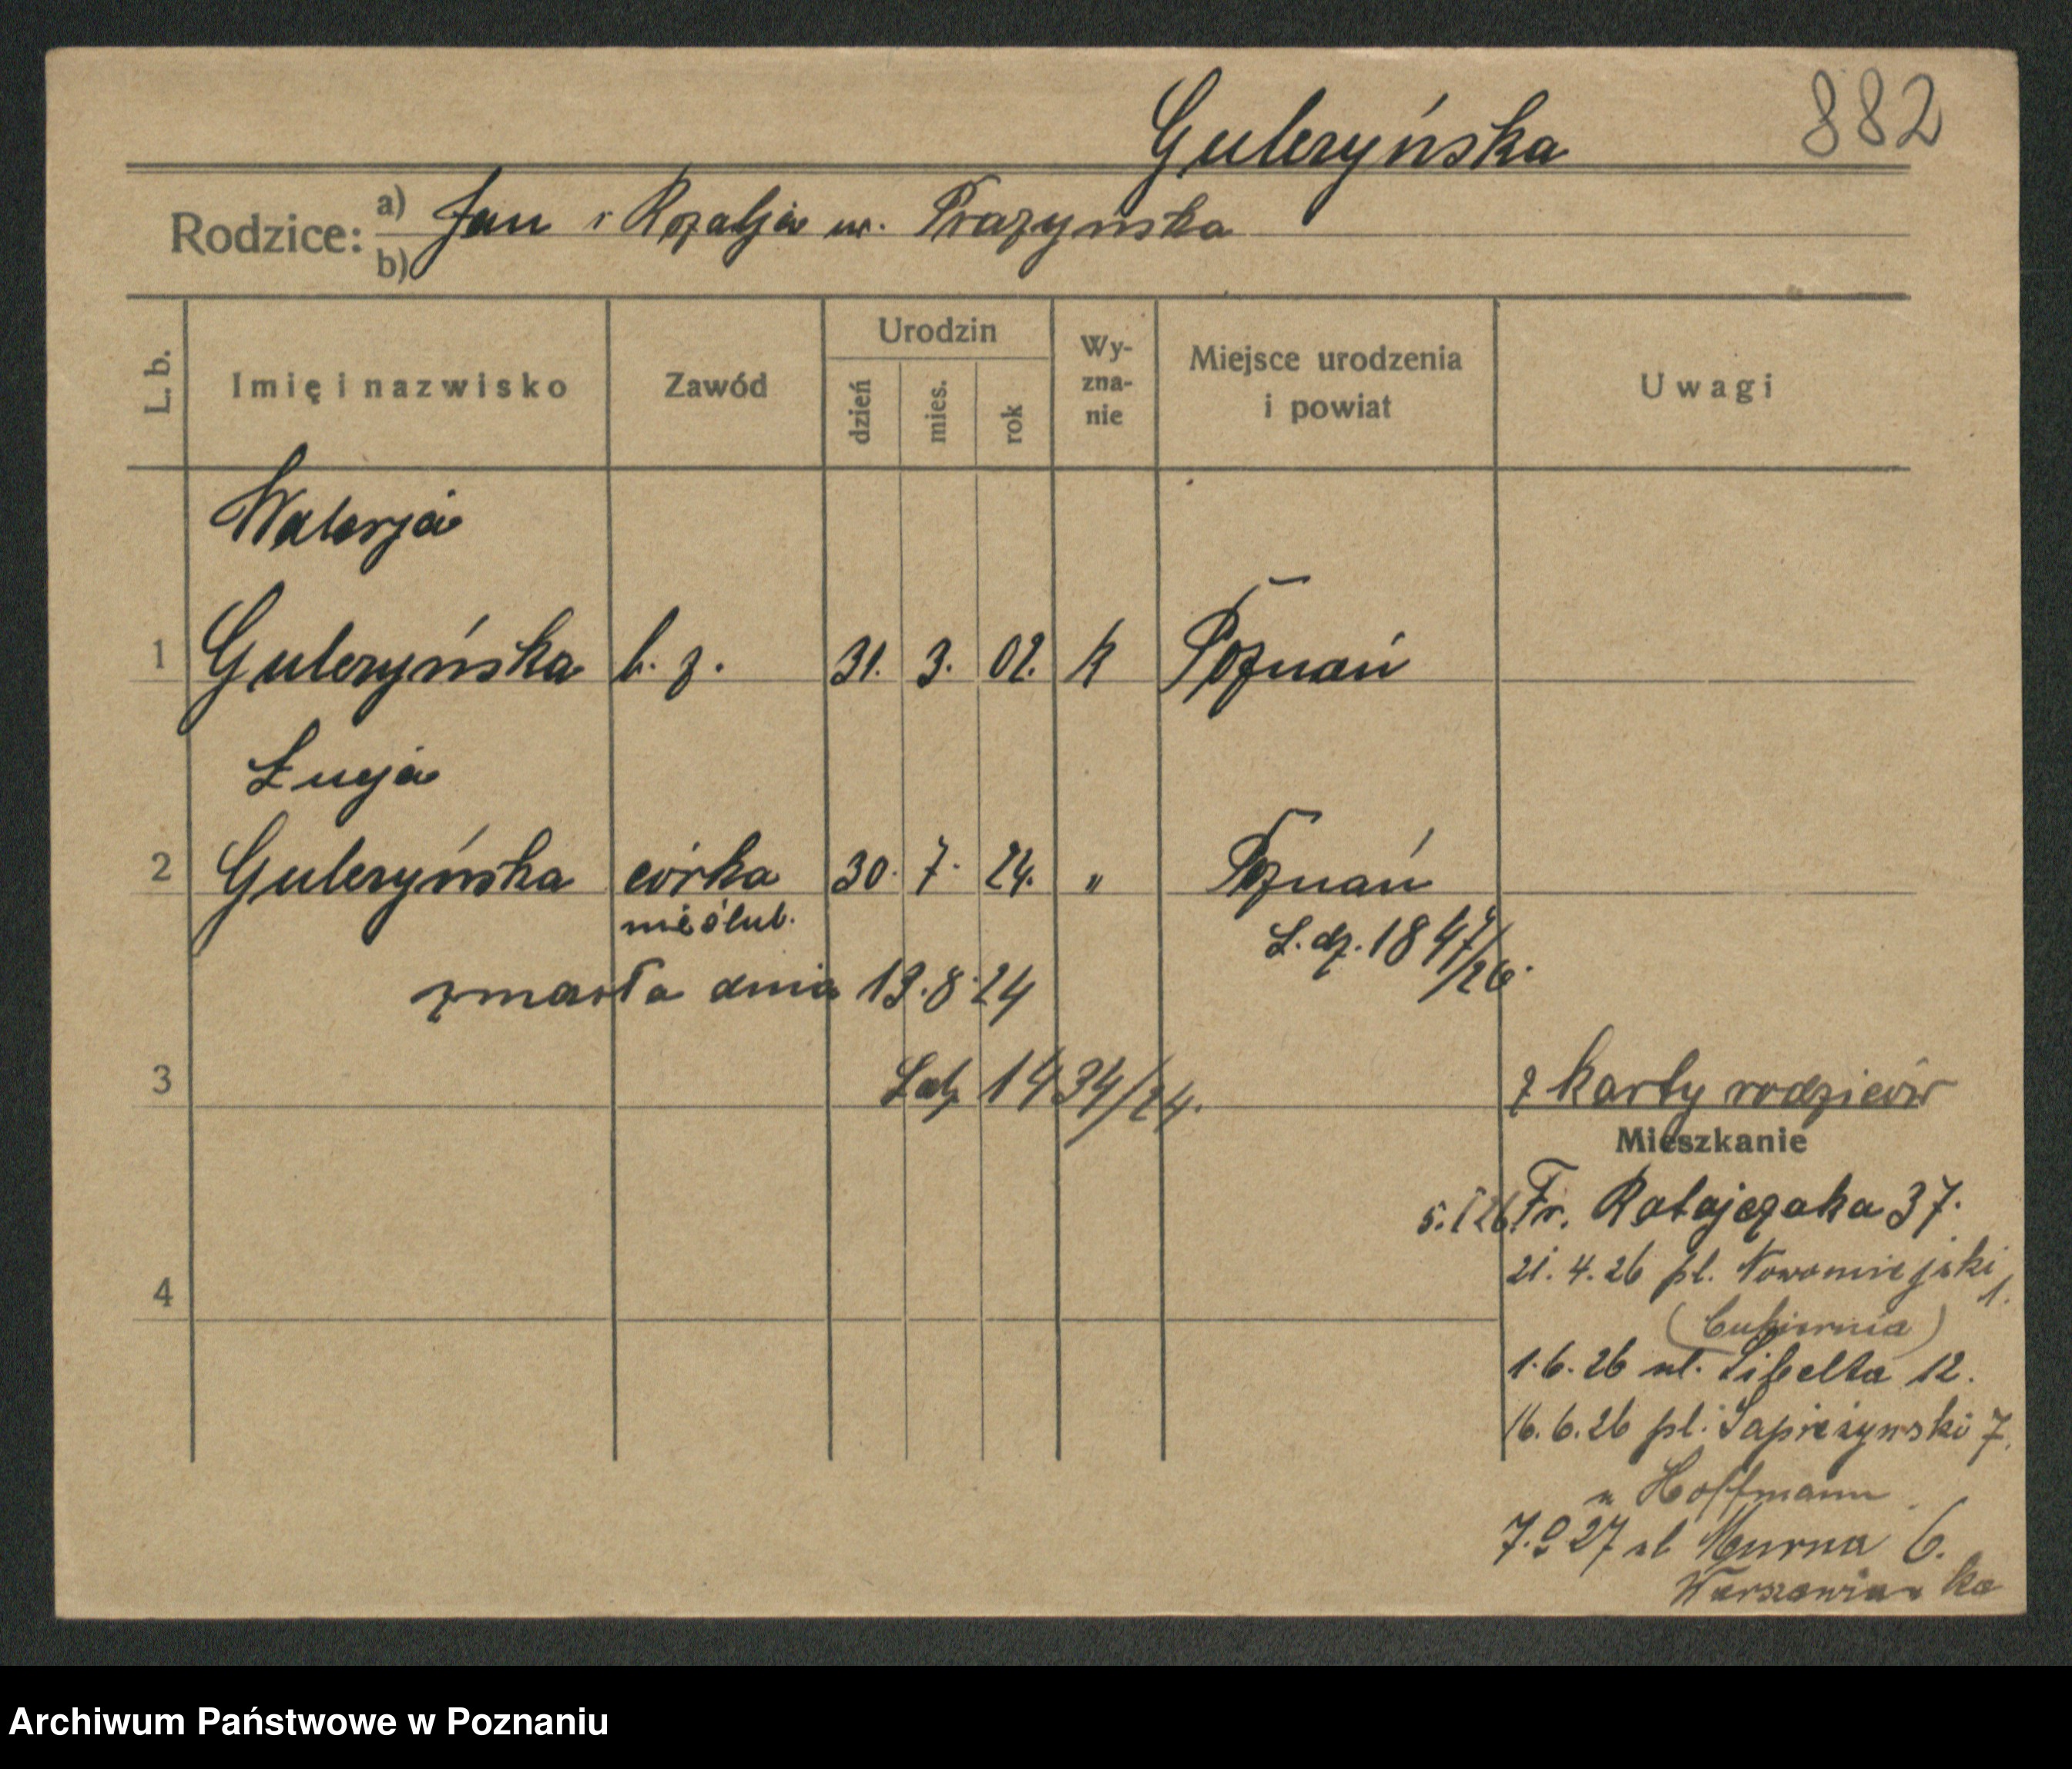 Gulczyńska 882
Rodzice: a) Jan i Rozalja ur. Prażyńska
b)
L. b. Imię i nazwisko Zawód Urodzin dzień mies. rok Wyznanie Miejsce urodzenia i powiat Uwagi
Walerja
1 Gulczyńska b. z. 31. 3. 02. k Poznań
Łucja
2 Gulczyńska córka 30. 7. 24. " Poznań
nieślub. L. dz. 1847/26.
zmarła dnia 13.8.24
3 Ldz 1434/24. z karty rodziców
Mieszkanie
Fr. Ratajczaka 37.
4 21. 4. 26 pl. Nowomiejski 1.
(Cukiernia)
1. 6. 26 ul. Libelta 12.
16. 6. 26 pl. Sapieżyński 7.
u Hoffmann
27 ul Murna 6.
Warszawianka
Archiwum Państwowe w Poznaniu